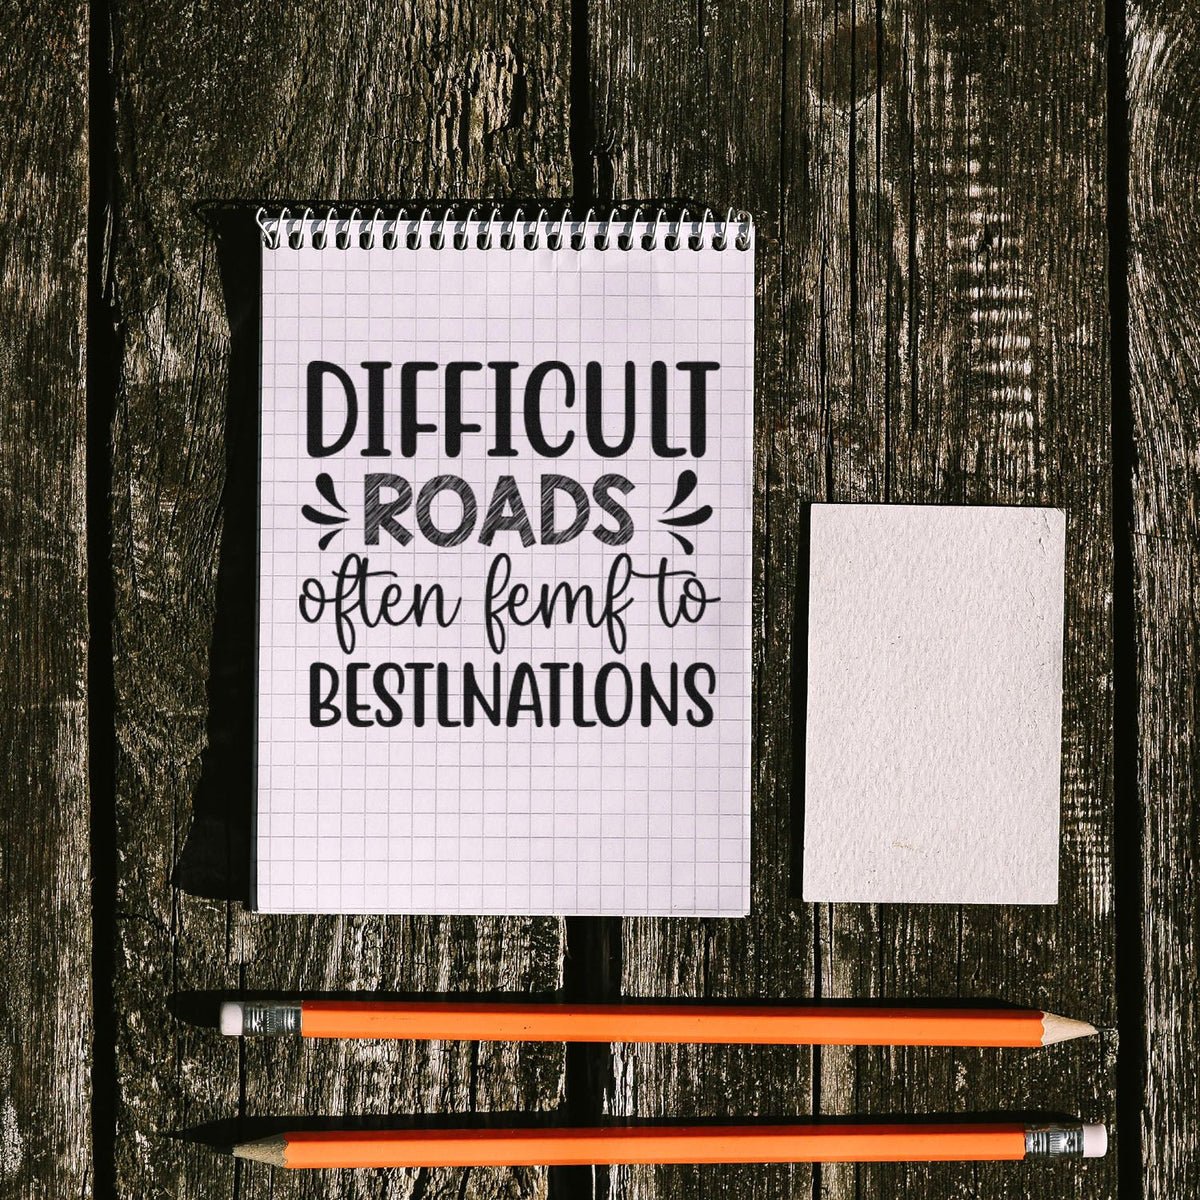 DIFFICULT
ROADS
often femf to
BESTLNATLONS